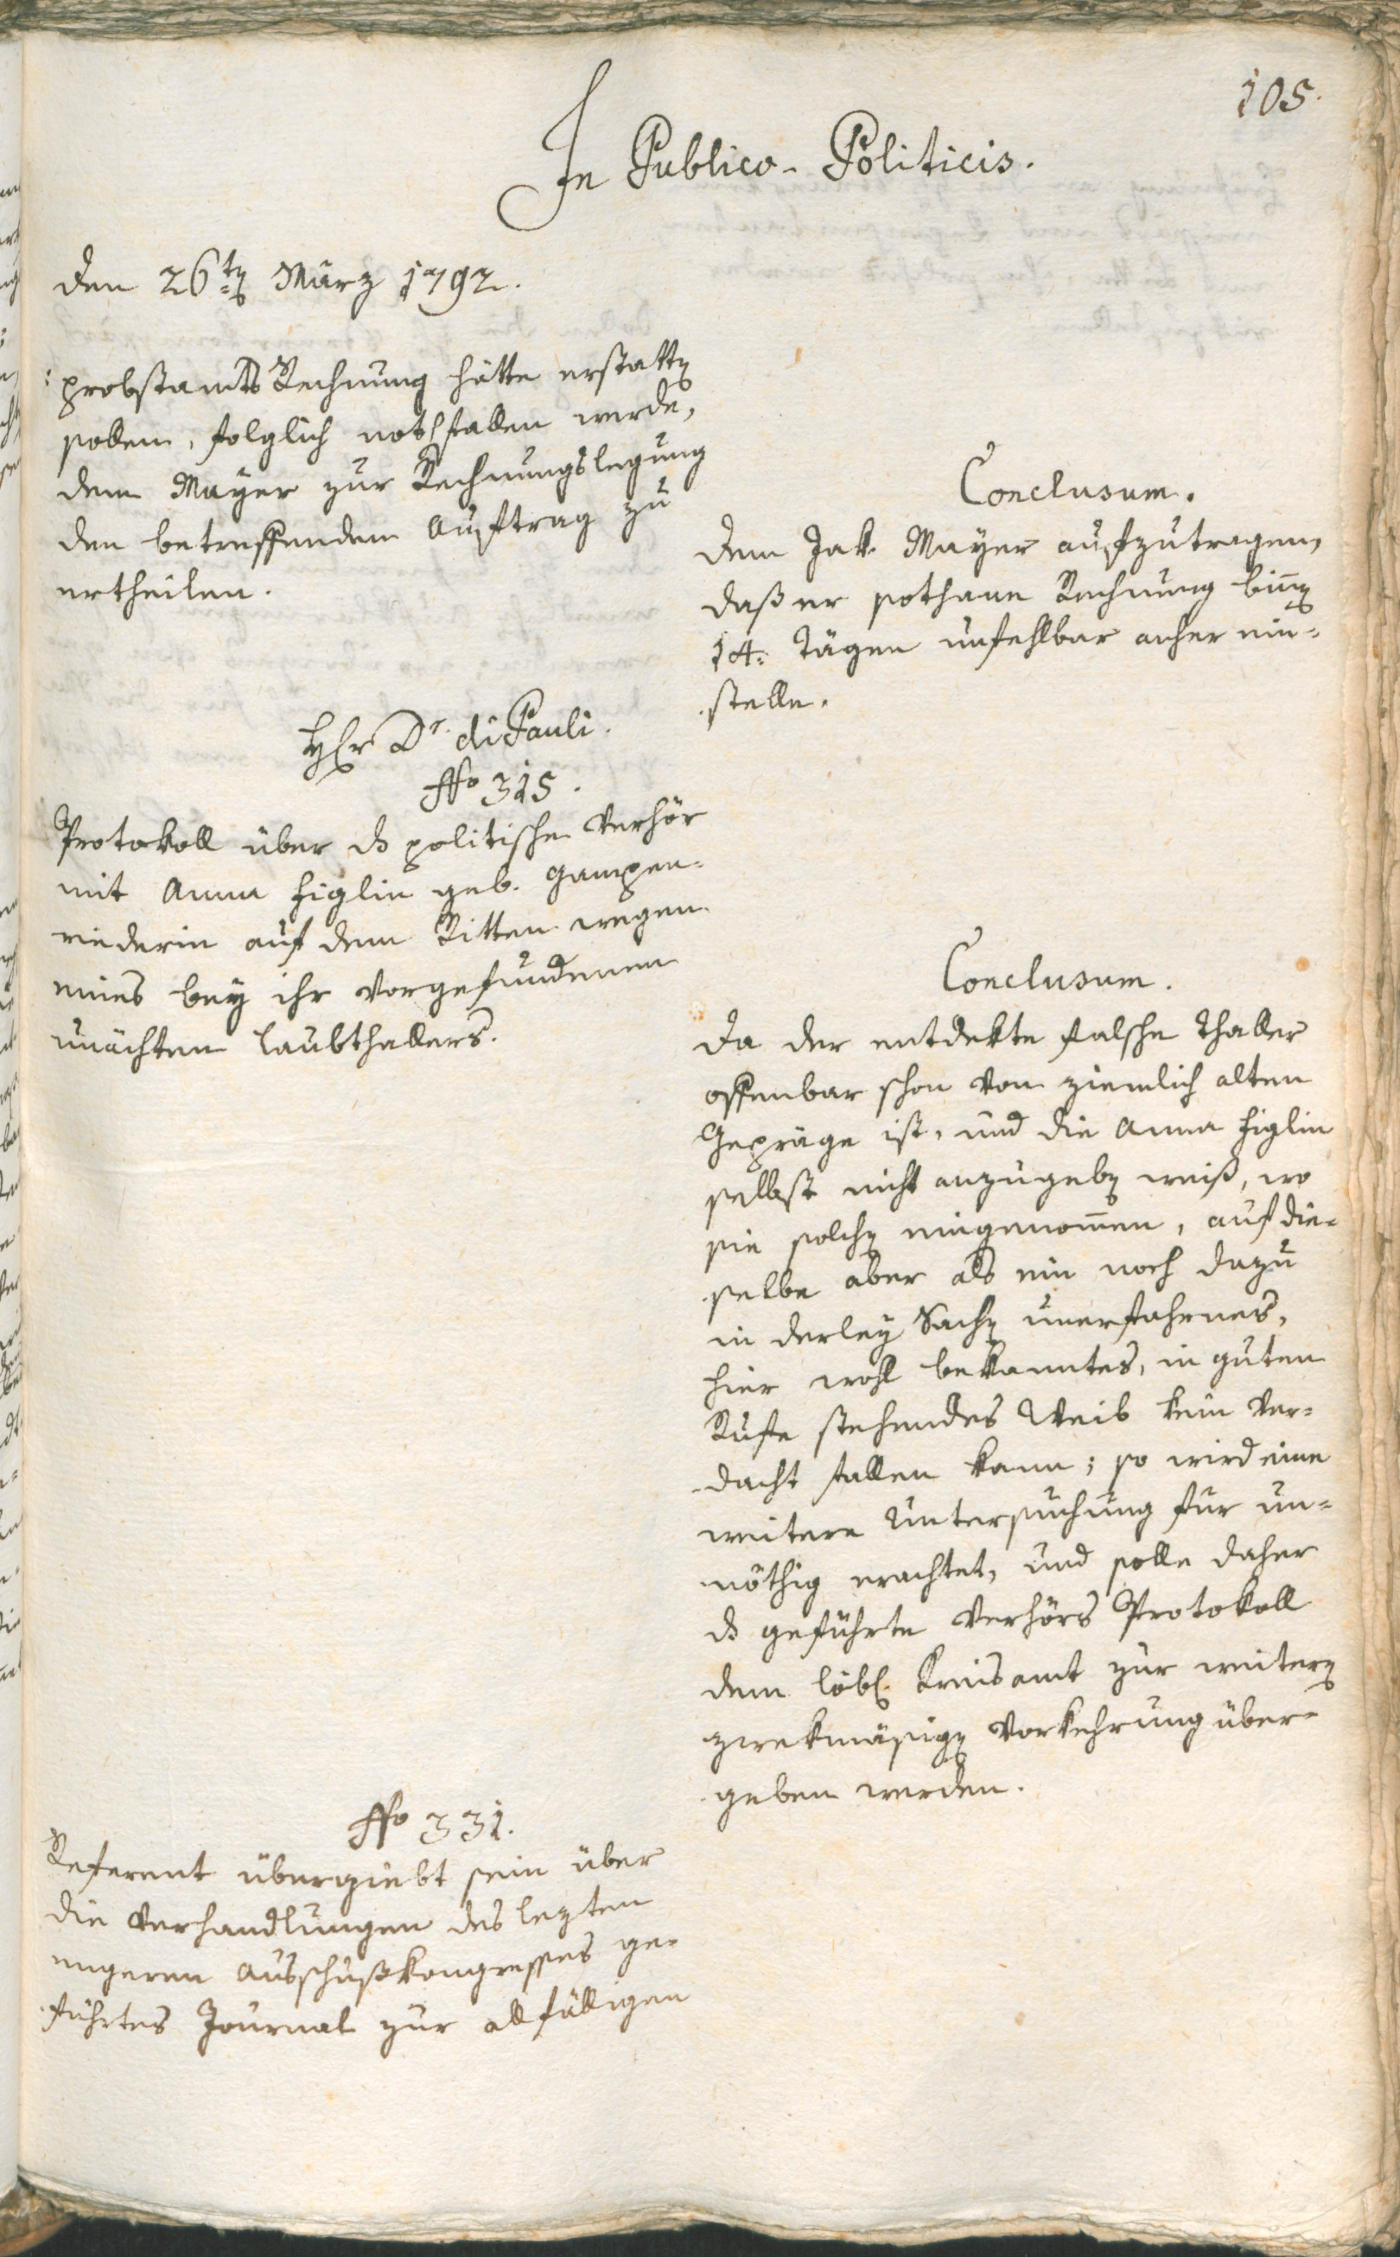 105.
In Publico-Politicis.
den 26ten März 1792.
: probstamts Rechnung hätte erstatten
sollen, folglich nothfallen werde,
dem Mayer zur Rechnungslegung
den betreffenden Auftrag zu
ertheilen.
Conclusum.
dem Jak. Mayer aufzutragen,
daß er sothane Rechnung binnen
14: Tägen unfehlbar anher ein=
stelle.
Herr Dr. di Pauli.
No 315.
Protokoll über das politische Verhör
mit Anna Figlin geb. Gampen-
riederin auf dem Ritten wegen
eines bey ihr vorgefundenen
unächten Laubthallers.
Conclusum.
Da der entdekte falsche Thaller
offenbar schon von ziemlich alten
Gepräge ist, und die Anna Figlin
selbst nicht anzugeben weiß, wo
sie solchen eingenommen, auf die=
selbe aber als ein noch dazu
in derley Sachen unerfahrnes,
hier wohl bekanntes, in guten
Rufe stehendes Weib kein Ver=
dacht fallen kann; so wird eine
weitere Untersuchung für un=
nöthig erachtet, und solle daher
das geführte Verhörs Protokoll
dem löbl. Kreisamt zur weitern
zwekmäsigen Vorkehrung über=
geben werden.
No 331.
Referent übergiebt sein über
die Verhandlungen des lezten
engeren Ausschußkongresses ge-
führtes Journal zur allfälligen